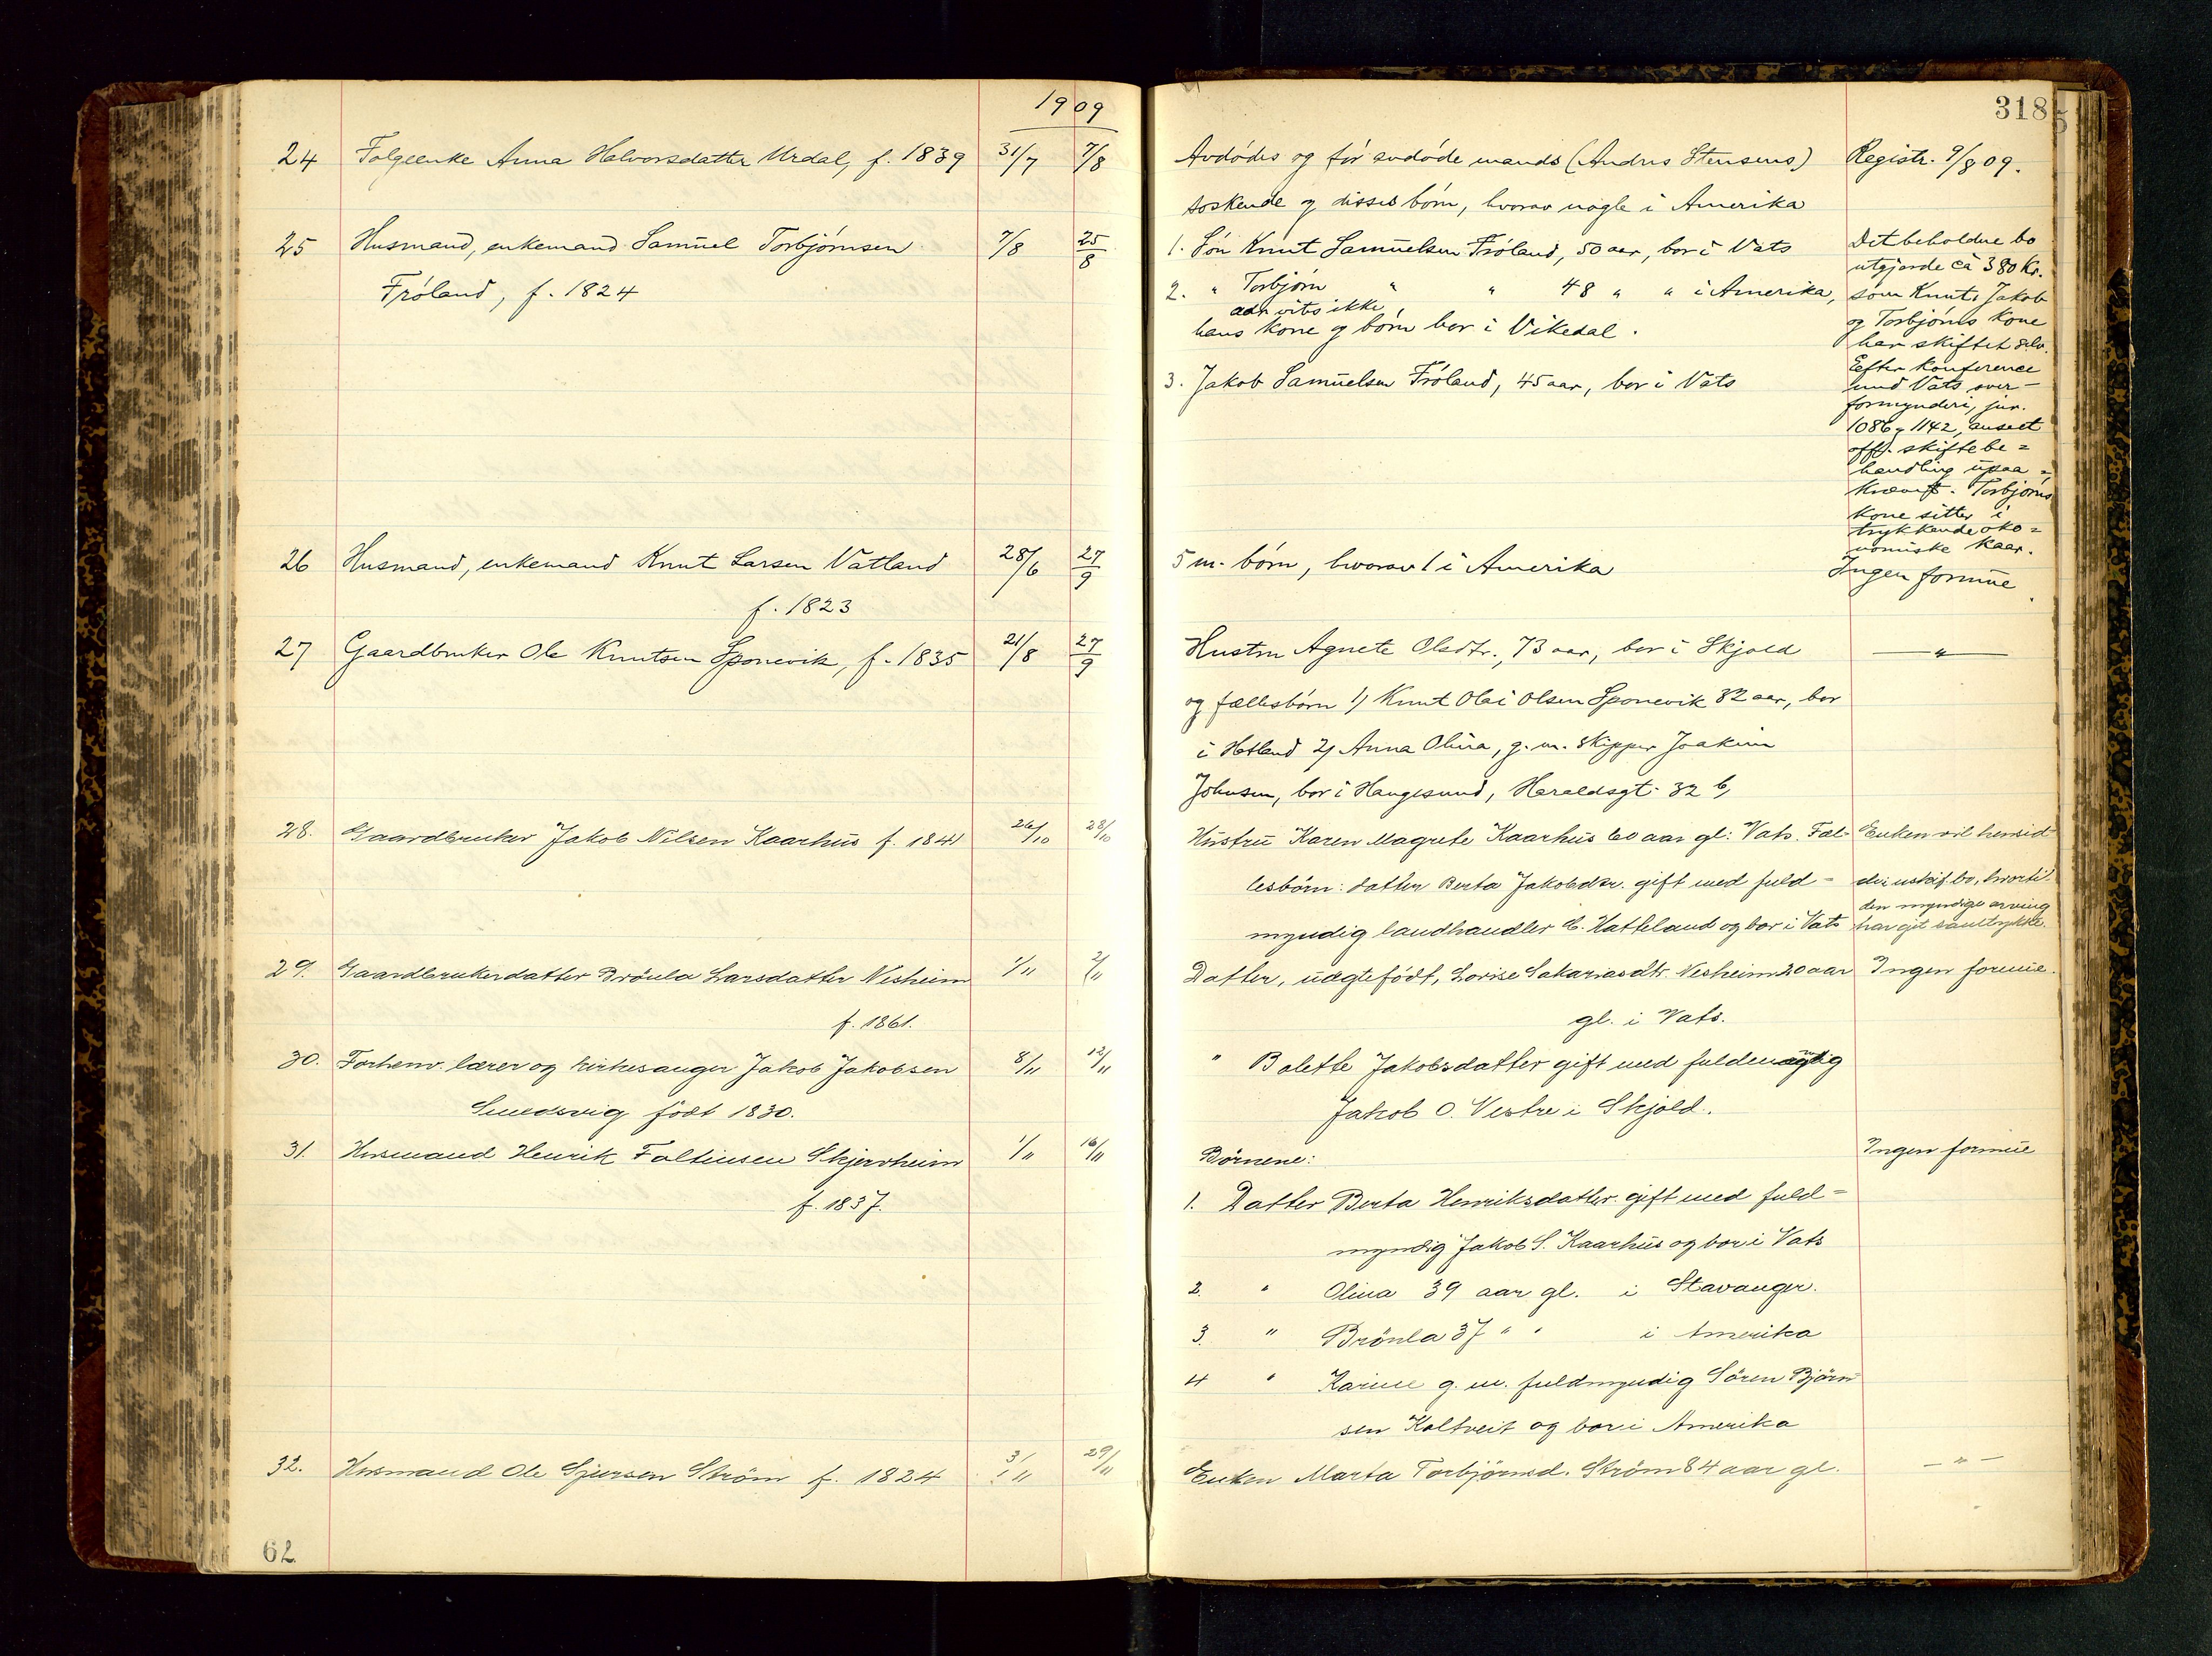 1909
318
24 Folgeenke Anna Halvorsdatter Urdal, f. 1839 31/7 7/8 Avdødes og før avdøde mands (Andres Stensens) Registr. 9/8 09.
søskende og disses børn, hvorav nogle i Amerika
25 Husmand, enkemand Samuel Torbjørnsen 7/8 25/8 1. Søn Knut Samuelsen Frøland, 50 aar, bor i Vats Det beholdne bo
utgjorde ca 380 Kr.
Frøland, f. 1824 2. " Torbjørn " " 48 " " i Amerika, som Knut, Jakob
adr vites ikke,
hans kone og børn bor i Vikedal. og Torbjørns kone
har skiftet selv.
3. Jakob Samuelsen Frøland, 45 aar, bor i Vats Efter konference
med Vats over-
formynderi, jur.
1086 og 1142, anseet
offtl. skiftebe=
handling upaa=
krævet. Torbjørns
kone sitter i
trykkende øko=
nomiske kaar.
26 Husmand, enkemand Knut Larsen Vatland 28/6 27/9 5 m. børn, hvorav 1 i Amerika Ingen formue.
f. 1823
27 Gaardbruker Ole Knutsen Sponevik, f. 1835 21/8 27/9 Hustru Agnete Olsdtr., 73 aar, bor i Skjold — " —
og fællesbørn 1) Knut Olai Olsen Sponevik 32 aar, bor
i Hetland 2) Anna Olina, g. m. skipper Joakim
Johnsen, bor i Haugesund, Haraldsgt. 32 b,
28. Gaardbruker Jakob Nilsen Kaarhus f. 1841 26/10 28/10 Hustru Karen Magrete Kaarhus 60 aar gl: Vats. Fæl- Enken vil hensid-
lesbørn: datter Berta Jakobsdtr. gift med fuld- de i uskif. bo, hvortil
den myndige arving
myndig landhandler E. Hatteland og bor i Vats har git samtykke.
29. Gaardbrukerdatter Brønla Larsdatter Nesheim 1/11 2/11 Datter, uægtefødt, Lovise Sakariasdtr. Nesheim 20 aar Ingen formue.
f. 1861. gl. i Vats.
30. Forhenv. lærer og kirkesanger Jakob Jakobsen 8/11 12/11 " Bolette Jakobsdatter gift med fuldmyndig
Smedsvig født 1830. Jakob O. Vestre i Skjold.
31. Husmand Henrik Faltinsen Skjerheim 1/11 16/11 Børnene: Ingen formue
f. 1837. 1. Datter Berta Henriksdatter gift med fuld-
myndig Jakob S. Kaarhus og bor i Vats
2. " Olina 39 aar gl. i Stavanger.
3. " Brønla 37 " " i Amerika
4 " Karine g. m. fuldmyndig Søren Bjørn-
sen Koltveit og bor i Amerika
32. Husmand Ole Sjursen Strøm f. 1824 3/11 29/11 Enken Marta Torbjørnsd. Strøm 84 aar gl. — " —
62